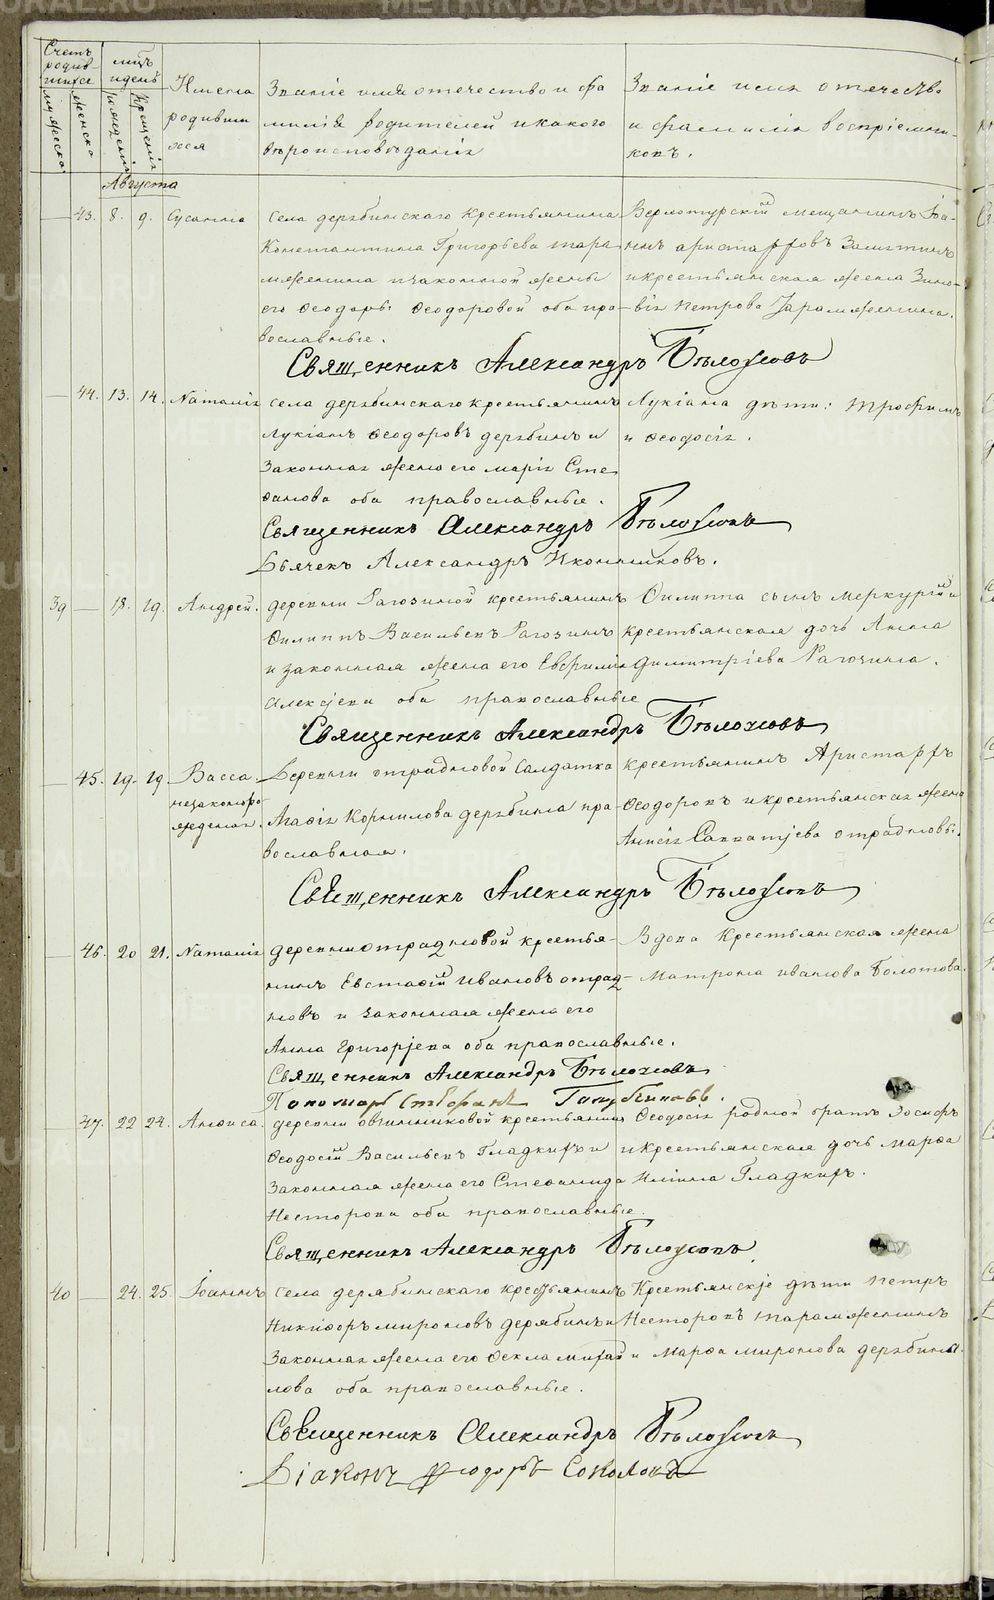 Счетъ родив-шихся
мужеска
женска
мѣсяцъ и день
рожденія
крещенія
Имена родившихся
Званіе имя отечество и фа
милія родителей и какого
вѣроисповѣданія
Званіе имя отечество
и фамилія воспріемни-
ковъ.
Августа
43. 8. 9. Сусанна
села дерябинскаго Крестьянина
Константина Григорьева
женина и законной жены
его Ѳеодоры Ѳеодоровой оба пра-
вославные.
Верхотурскій мѣщанинъ Іоа-
ннъ аристарховъ
и крестьянская жена Зино-
вія Петрова
Священникъ Александръ Бѣлоусовъ
44. 13. 14. Наталія
села дерябинскаго крестьянинъ
Лукіанъ Ѳеодоровъ дерябинъ и
Законная жена его марія Сте
ѳанова оба православные.
Лукіана дѣти: трофимъ
и Ѳеодосія.
Священникъ Александръ Бѣлоусовъ
Дьячекъ Александръ Иконниковъ.
39 18. 19. Андрей.
деревни Рагозиной крестьянинъ
Филиппъ Васильевъ Рагозинъ
и законная жена его Евфимія
Алексѣева оба православные
Филиппа сынъ Меркурій и
крестьянская дочь Анна
Димитріева Рагозина.
Священникъ Александръ Бѣлоусовъ
45. 19. 19. Васса
незаконоро-
жденная.
Деревни отрадновой Салдатка
Корнилова дерябина пра-
вославная.
крестьянинъ Аристархъ
Ѳеодоровъ и крестьянская жена
Анисія Савватѣева отрадновы.
Священникъ Александръ Бѣлоусовъ
46. 20 21. Наталія
деревни отрадновой крестья-
нинъ Евстаѳій Ивановъ отрад-
новъ и законная жена его
Анна Григорьева оба православные.
Вдова Крестьянская жена
Матрона иванова Болотова.
Священникъ Александръ Бѣлоусовъ
Пономарь Стефанъ Голубчиковъ.
47. 22 24. Анфиса.
деревни овчинниковой крестьянинъ
Ѳеодосій Васильевъ Гладкихъ и
Законная жена его Стефанида
Несторова оба православные.
Ѳеодосія родной братъ Іосифъ
и крестьянская дочь марѳа
Гладкихъ.
Священникъ Александръ Бѣлоусовъ
40 24. 25. Іоаннъ
села дерябинскаго крестьянинъ
Никифоръ мироновъ дерябинъ и
Законная жена его Ѳекла михай
лова оба православные.
Крестьянскіе дѣти петръ
Несторовъ
и Марѳа миронова дерябины.
Священникъ Александръ Бѣлоусовъ
Діаконъ Ѳеодоръ Соколовъ
METRIKI.GASO-URAL.RU